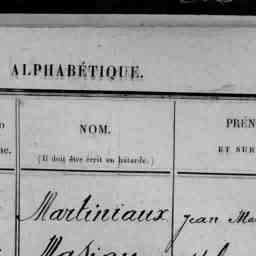 ALPHABÉTIQUE.
NOM.
(Il doit être écrit en bâtarde.)
PRÉN
ET SUR
Martiniaux Jean Ma